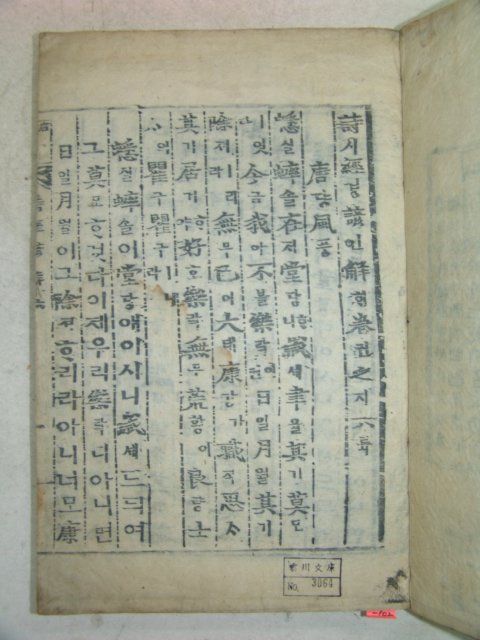 詩시經경諺언解해卷권之지六륙
唐당風풍
蟋실蟀솔在재堂당ᄒᆞ니歲세聿율其기莫모
ㅣ엇다今금我아不블樂락이면日일月월其기
除제리라無무已이大태康강가職직思ᄉᆞ
其기居거ᄒᆞ야好호樂락無무荒황이良량士
ᄉᆞ의瞿구瞿구ㅣ니라
蟋실蟀솔이堂당애이시니歲세드듸여
그莫모ᄒᆞ것다이제우리樂락디아니면
日일月월이그除제ᄒᆞ리라아니너모康
君川文庫
No. 3064